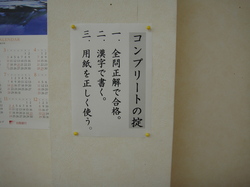 コンプリートの掟
一、全問正解で合格。
二、漢字で書く。
三、用紙を正しく使う。